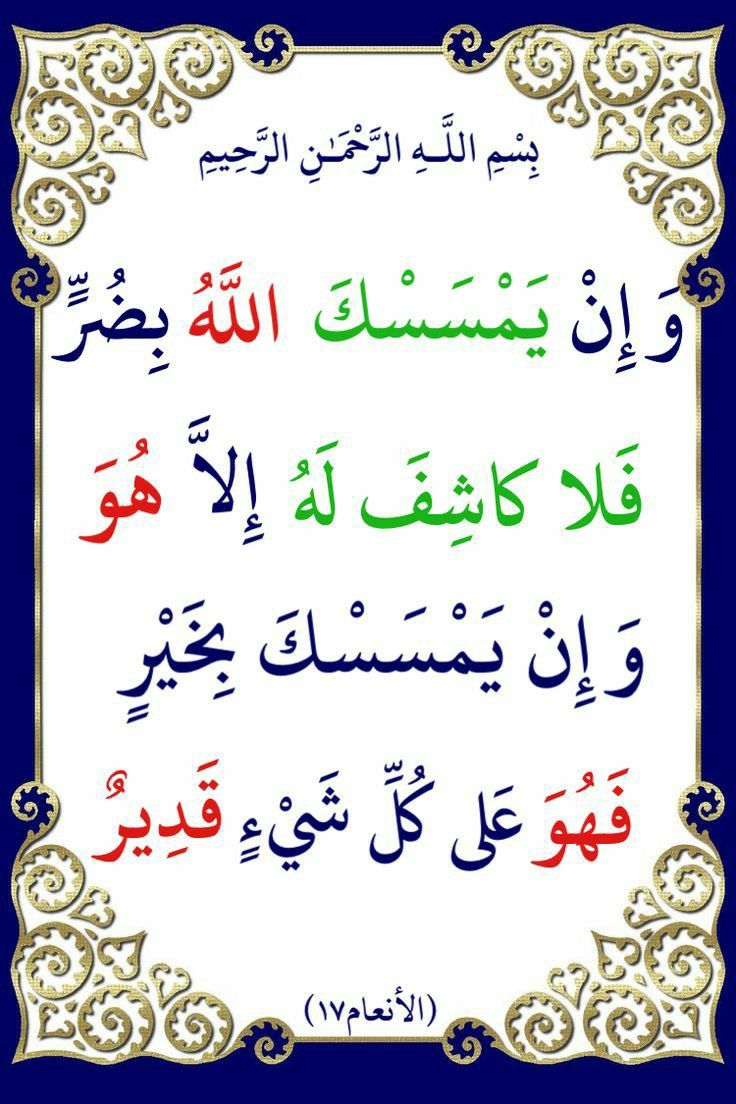 بِسْمِ اللَّـهِ الرَّحْمَـٰنِ الرَّحِيمِ
وَ إِنْ يَمْسَسْكَ اللَّهُ بِضُرٍّ
فَلا كاشِفَ لَهُ إِلاَّ هُوَ
وَ إِنْ يَمْسَسْكَ بِخَيْرٍ
فَهُوَ عَلى كُلِّ شَيْءٍ قَدِيرٌ
(الأنعام١٧)